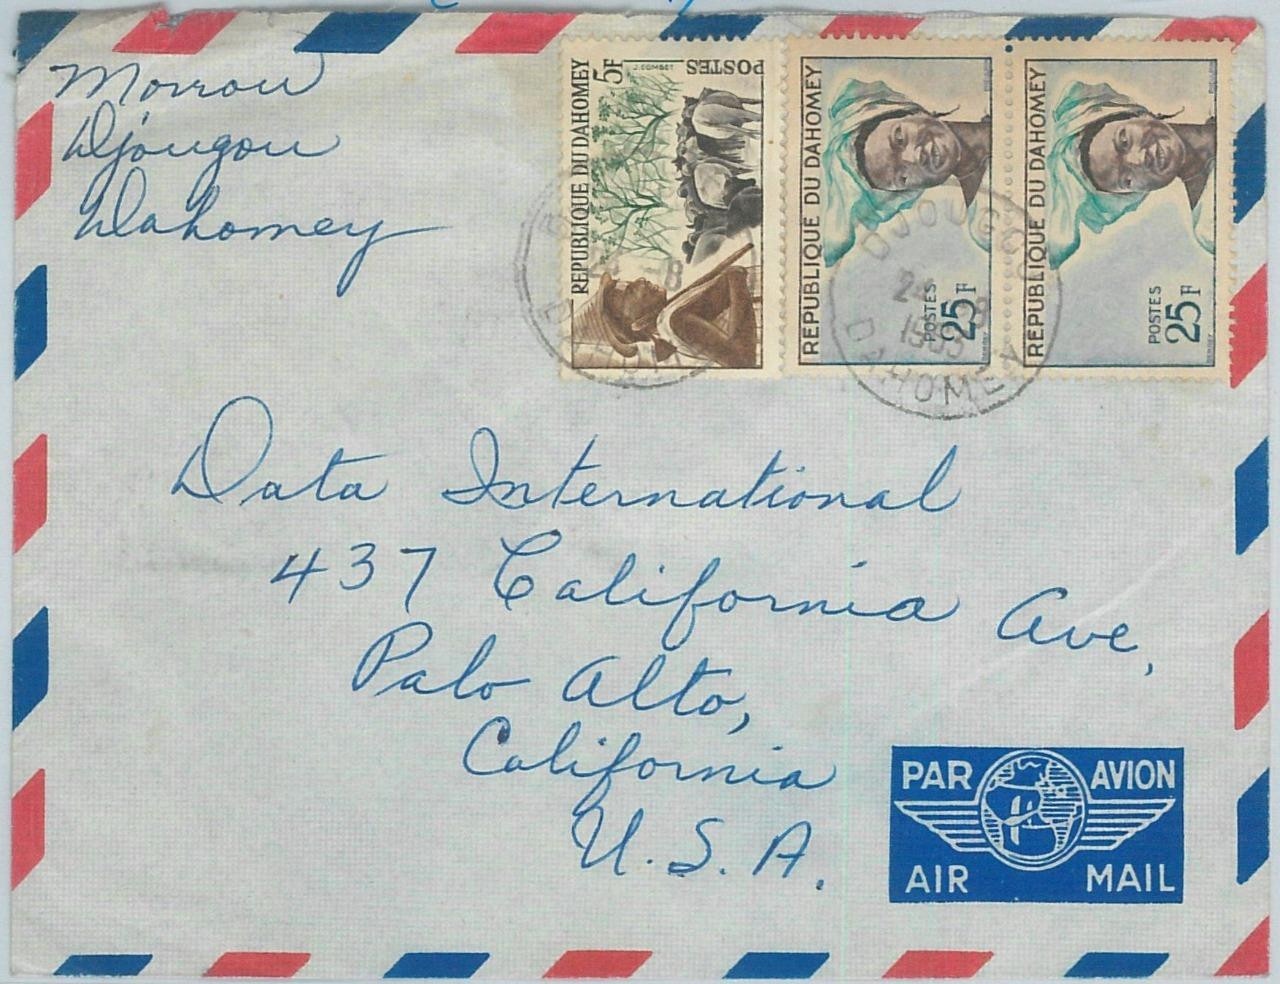 Morrow
Djougou
Dahomey
REPUBLIQUE DU DAHOMEY
5F
J. COMBET
POSTES
REPUBLIQUE DU DAHOMEY
POSTES
25F
REPUBLIQUE DU DAHOMEY
POSTES
25F
DJOUGOU
24 -8
1963
DAHOMEY
Data International
437 California Ave,
Palo Alto,
California
U.S.A.
PAR AVION
AIR MAIL